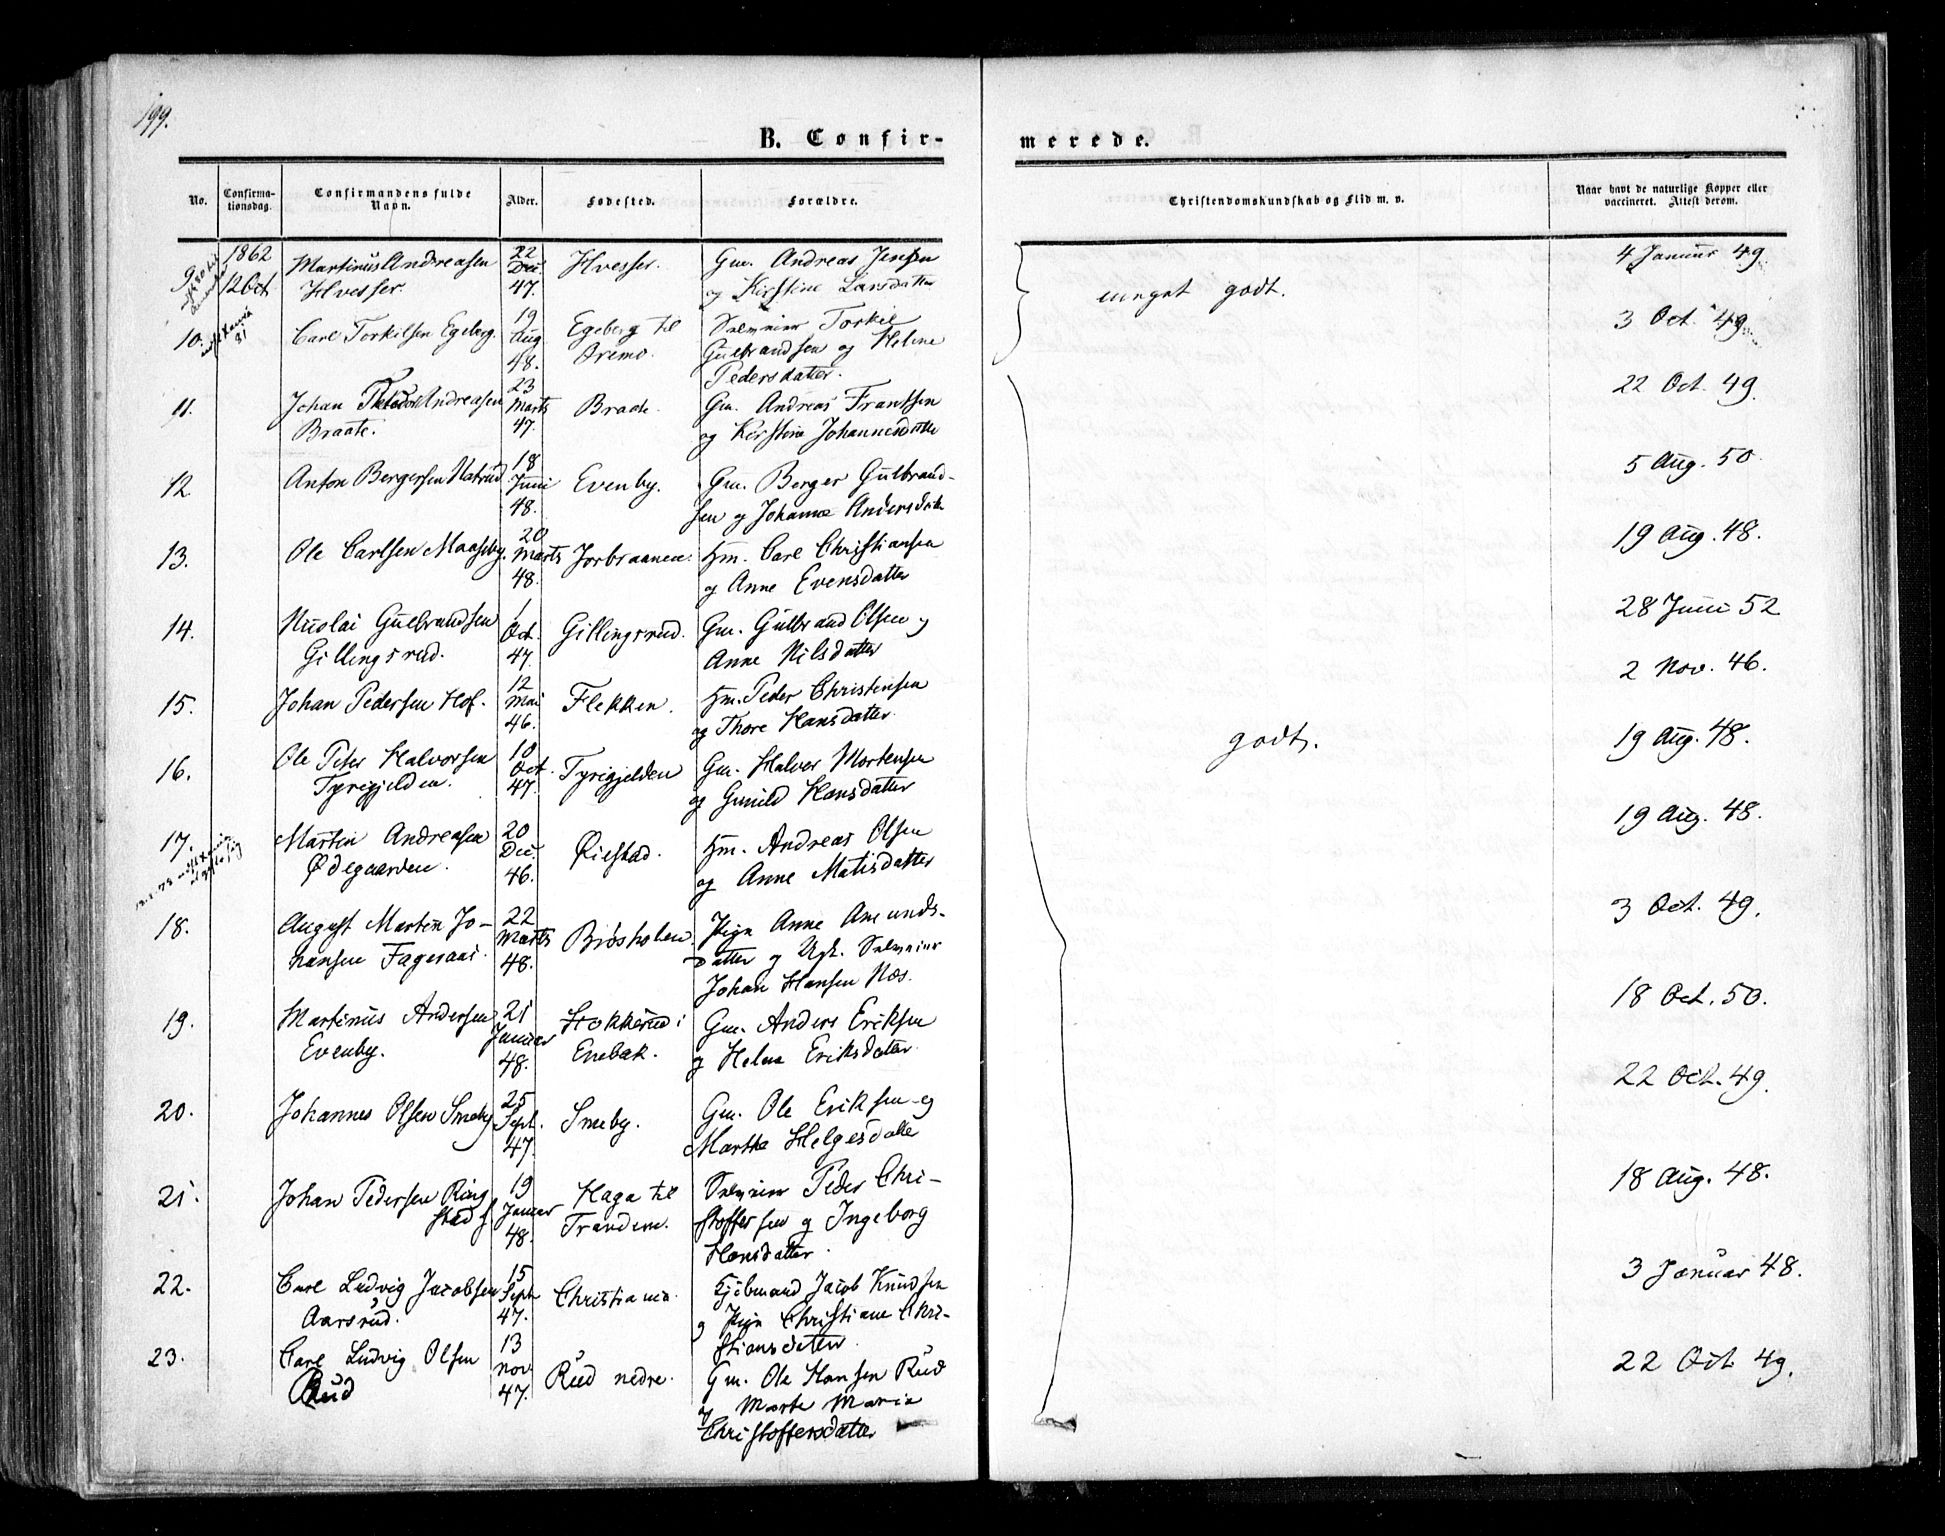 199.
B. Confir-
merede.
No.
Confirma-
tionsdag.
Confirmandens fulde
Navn.
Alder.
Fødested.
Forældre.
Christendomskundskab og Flid m. v.
Naar havt de naturlige Kopper eller
vaccineret. Attest derom.
9
1862
12 Oct
Martinus Andreasen
Hvesser.
22
Dec
47.
Hvesser.
Gm. Andreas Jensen
og Kirstine Larsdatter
meget godt.
4 Januar 49.
10.
Carl Torkilsen Egeberg.
19
Aug
48.
Egeberg til
Bremo.
Torkil
Gulbrandsen og Helene
Pedersdatter.
3 Oct. 49.
11.
Johan Andreasen
Braate.
23
Marts
47.
Braate.
Gm. Andreas Frantsen
og Kirstine Johannesdatter
22 Oct. 49.
12.
Anton Bergersen Natrud
18
Juni
48.
Evenby.
Gm. Berger Gulbrand-
sen og Johanne Andersdatter
5 Aug. 50.
13.
Ole Carlsen Maaseby.
20
Marts
48.
Jorbraanen.
Hm. Carl Christiansen
og Anne Evensdatter
19 Aug. 48.
14.
Nicolai Gulbrandsen
Gillingsrud.
1
Oct.
47.
Gillingsrud.
Gm. Gulbrand Olsen og
Anne Nilsdatter
28 Juni 52
15.
Johan Pedersen Hof.
12
Mai
46.
Flekken.
Hm. Peder Christensen
og Thore Hansdatter.
2 Nov. 46.
16.
Ole Peter Halvorsen
Tyrigjelden.
10
Oct.
47.
Tyrigjelden
Gm. Halvor Mortensen
og Gunild Hansdatter
godt.
19 Aug. 48.
17.
Martin Andreasen
Ødegaarden.
20
Dec.
46.
Øiestad.
Hm. Andreas Olsen
og Anne Matisdatter
19 Aug. 48.
18.
August Martin Jo-
hansen Fageraas.
22
Marts
48.
Biøsholen.
Pige Anne Amunds-
datter og Ugk.
Johan Hansen Næs.
3 Oct. 49.
19.
Martinus Andersen
Evenby.
21
Januar
48.
Stokkerud i
Enebak.
Gm. Anders Eriksen
og Helene Eriksdatter.
18 Oct. 50.
20.
Johannes Olsen Smeby
25
Sept.
47.
Smeby.
Gm. Ole Eriksen og
Marthe Helgesdatter
22 Oct. 49.
21.
Johan Pedersen Ring
stad
19
Januar
48.
Haga til
Trandem.
Peder Chri-
stoffersen og Ingeborg
Hansdatter.
18 Aug. 48.
22.
Carl Ludvig Jacobsen
Aarsrud.
15
Sept
47.
Christiania.
Kjøbmand Jacob Knudsen
og Pige Christiane Chri-
stiansdatter.
3 Januar 48.
23.
Carl Ludvig Olsen
Rud
13
Nov
47.
Rud nedre.
Gm. Ole Hansen Rud
og Marte Maria
Christoffersdatter
22 Oct. 49.